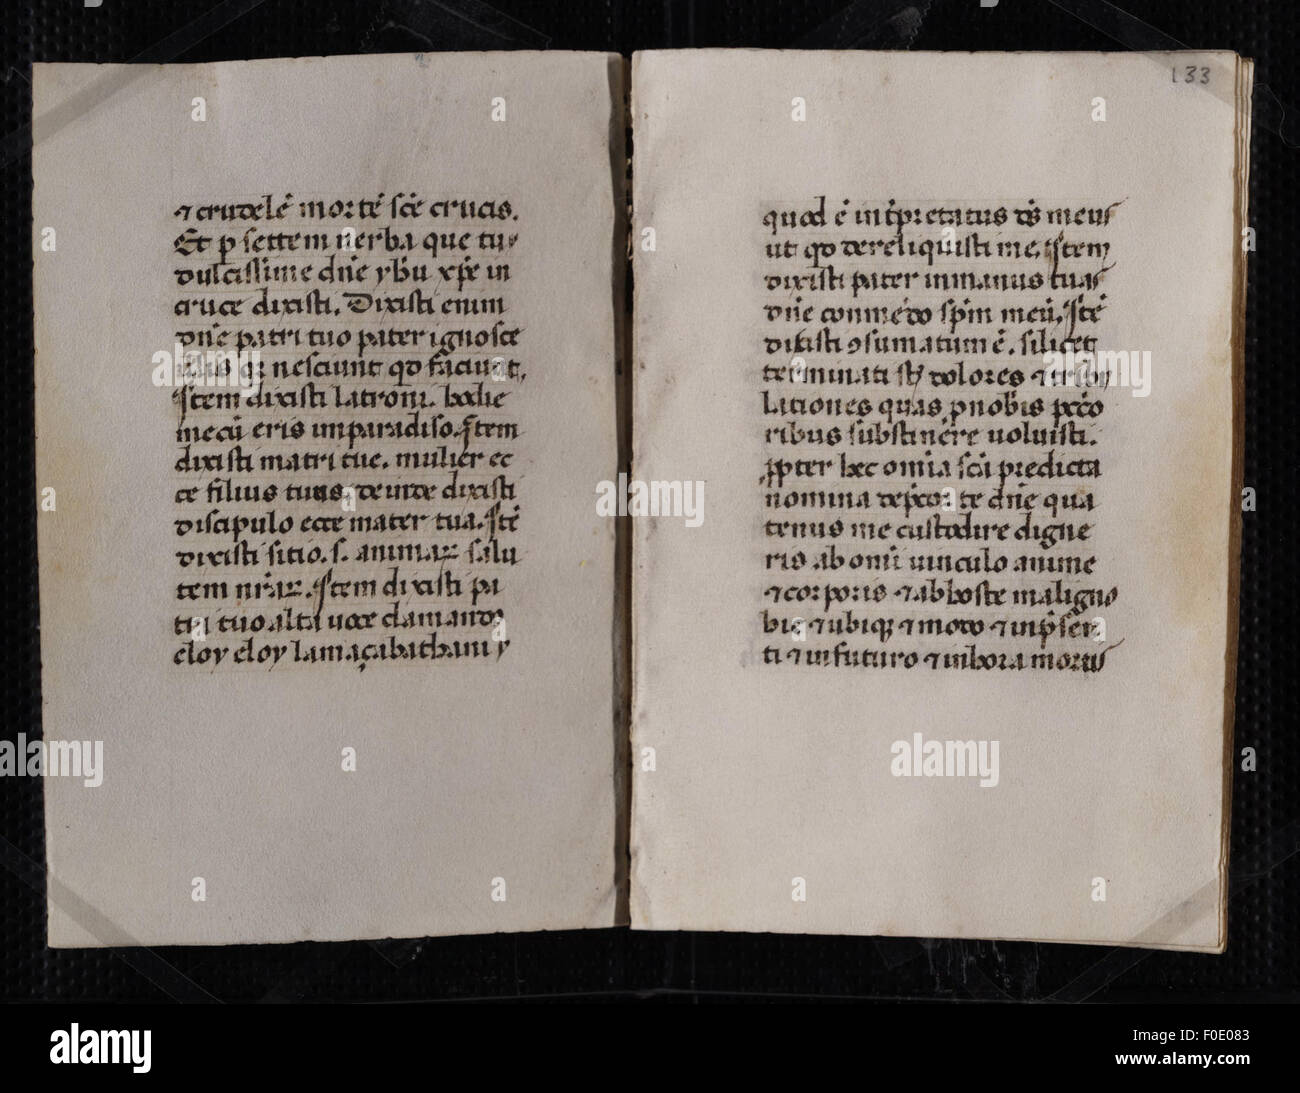 ⁊ crudelē mortē sc̄e crucis.
Et ꝑ settem uerba que tu
dulcissime dn̄e yħu xp̄e in
cruce dixisti. Dixisti enim
dn̄e patri tuo pater ignosce
illis qꝛ nesciunt qd̄ faciunt.
Item dixisti latroni. hodie
mecū eris in paradiso. Item
dixisti matri tue. mulier ec
ce filius tuus, deinde dixisti
discipulo ecce mater tua. Itē
dixisti sitio. s. animaꝝ salu
tem nr̄aꝝ. Item dixisti pa
tri tuo alta uoce clamando
eloy eloy lamaçabathani y
133
quod ē int̄pretatus ds̄ meus
ut qd̄ dereliquisti me. Item
dixisti pater in manus tuas
dn̄e conmēdo spm̄ meū. Itē
dixisti ꝯsumatum ē. silicet
terminati st̄ dolores ⁊ tribu
lationes quas ꝓ nobīs pecc̄o
ribus substinēre uoluisti.
ꝓpter hec omīa sc̄a predicta
nomina dep̄cor te dn̄e qua
tenus me custodire digne
ris ab omī uinculo anime
⁊ corporis ⁊ ab hoste maligno
hic ⁊ ubiqꝫ ⁊ modo ⁊ inp̄sen
ti ⁊ in futuro ⁊ in hora mortis
a
alamy
alamy
Image ID: F0E083
www.alamy.com